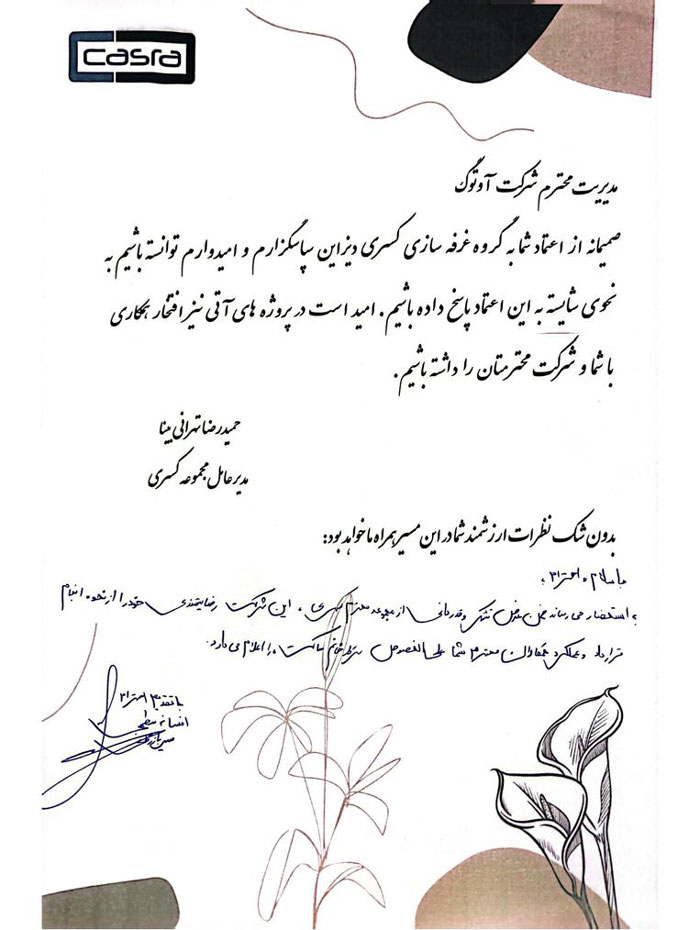 casra
مدیریت محترم شرکت آوتوگ
صمیمانه از اعتماد شما به گروه غرفه سازی کسری دیزاین سپاسگزارم و امیدوارم توانسته باشیم به
نحوی شایسته به این اعتماد پاسخ داده باشیم. امید است در پروژه های آتی نیز افتخار همکاری
با شما و شرکت محترمتان را داشته باشیم.
حمیدرضا تهرانی بینا
مدیر عامل مجموعه کسری
بدون شک نظرات ارزشمند شما در این مسیر همراه ما خواهد بود:
با سلام و احترام،
به استحضار می رساند ضمن عرض تشکر و قدردانی از مجموعه محترم کسری، این شرکت رضایتمندی خود را از نحوه انجام
قرارداد و عملکرد همکاران محترم شما علی الخصوص سرکار خانم را اعلام می دارد.
با تقدیم احترام
افسانه